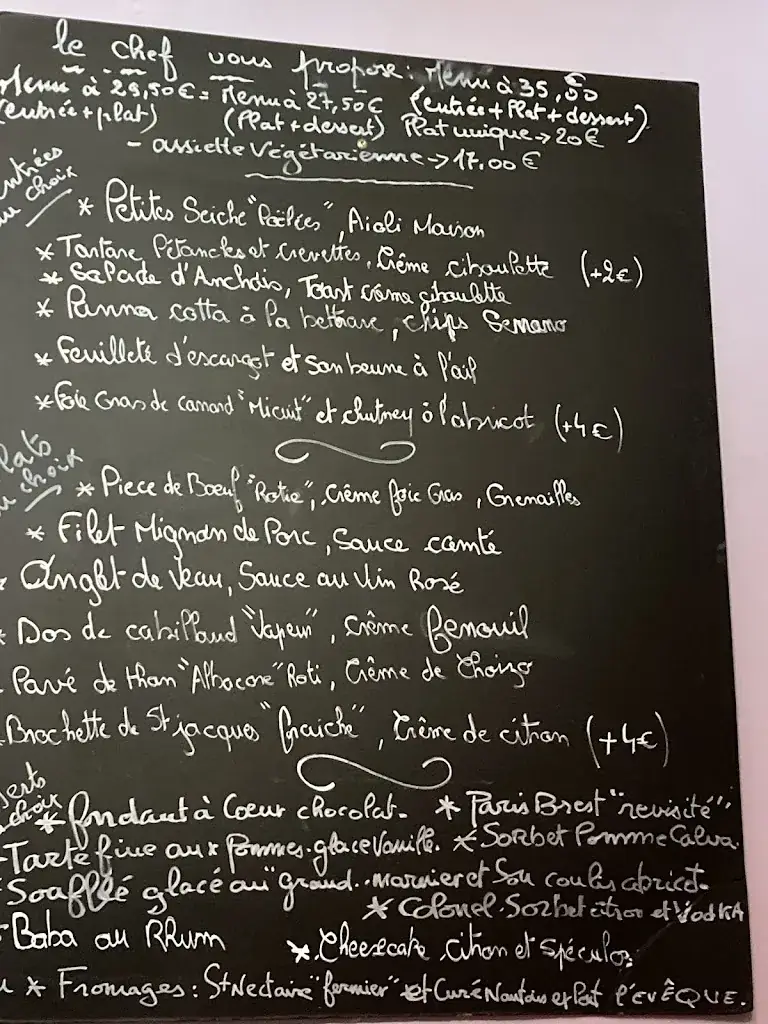 le chef vous propose: Menu à 35,00 €
Menu à 29,50€ = Menu à 27,50€ (entrée + Plat + dessert)
(entrée + plat) (Plat + dessert) Plat unique → 20€
- assiette Végétarienne → 17.00€
entrées au choix
* Petites Seiche "Poêlées", Aioli Maison
* Tartare Pétoncles et Crevettes, Crême ciboulette (+2€)
* Salade d'Anchois, Toast crème ciboulette
* Panna cotta à la betterave, chips Serrano
* Feuilleté d'escargot et son beurre à l'ail
* Foie Gras de canard "Micuit" et chutney à l'abricot (+4€)
Plats au choix
* Piece de Boeuf "Rotie", Crême foie Gras, Grenailles
* Filet Mignon de Porc, Sauce comté
* Onglet de Veau, Sauce au Vin Rosé
* Dos de cabillaud "Vapeur", Crême fenouil
- Pavé de thon "Albacore" Roti, Crême de Chorizo
- Brochette de St jacques "fraiche", Crême de citron (+4€)
* fondant à Coeur chocolat. * Paris Brest "revisité"
- Tarte fine aux Pommes. glace Vanille. * Sorbet Pomme Calva.
Soufflé glacé au "grand. marnier et Son coulis abricot.
* Colonel. Sorbet citron et VodKA
- Baba au Rhum * Cheesecake, Citron et Spéculos
* Fromages: St Nectaire "fermier" et Curé Nantais et Pont l'EVÊQUE.